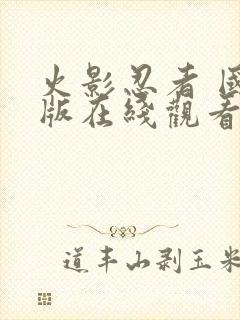 火影忍者 國
版在綫觀看
道丰山剥玉米